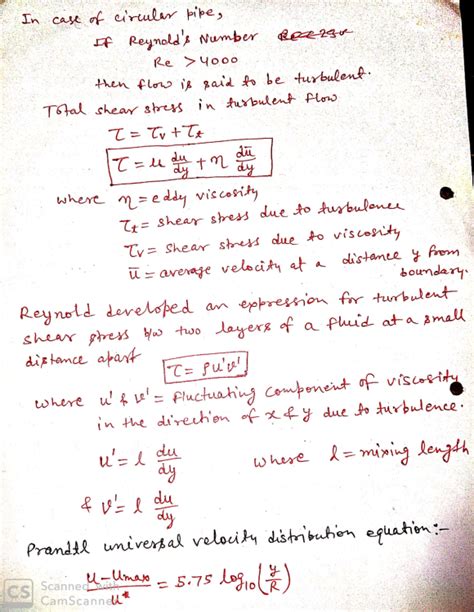 In case of circular pipe,
If Reynold's Number
Re > 4000
then flow is said to be turbulent.
Total shear stress in turbulent flow
τ = τv + τt
τ = μ du/dy + η dū/dy
where η = eddy viscosity
τt = shear stress due to turbulence
τv = shear stress due to viscosity
ū = average velocity at a distance y from
boundary.
Reynold developed an expression for turbulent
shear stress b/w two layers of a fluid at a small
distance apart
τ = ρu'v'
where u' & v' = fluctuating component of viscosity
in the direction of x & y due to turbulence.
u' = l du/dy where l = mixing length
& v' = l du/dy
Prandtl universal velocity distribution equation:-
u - umax / u* = 5.75 log10 (y/R)
CS Scanned with
CamScanner